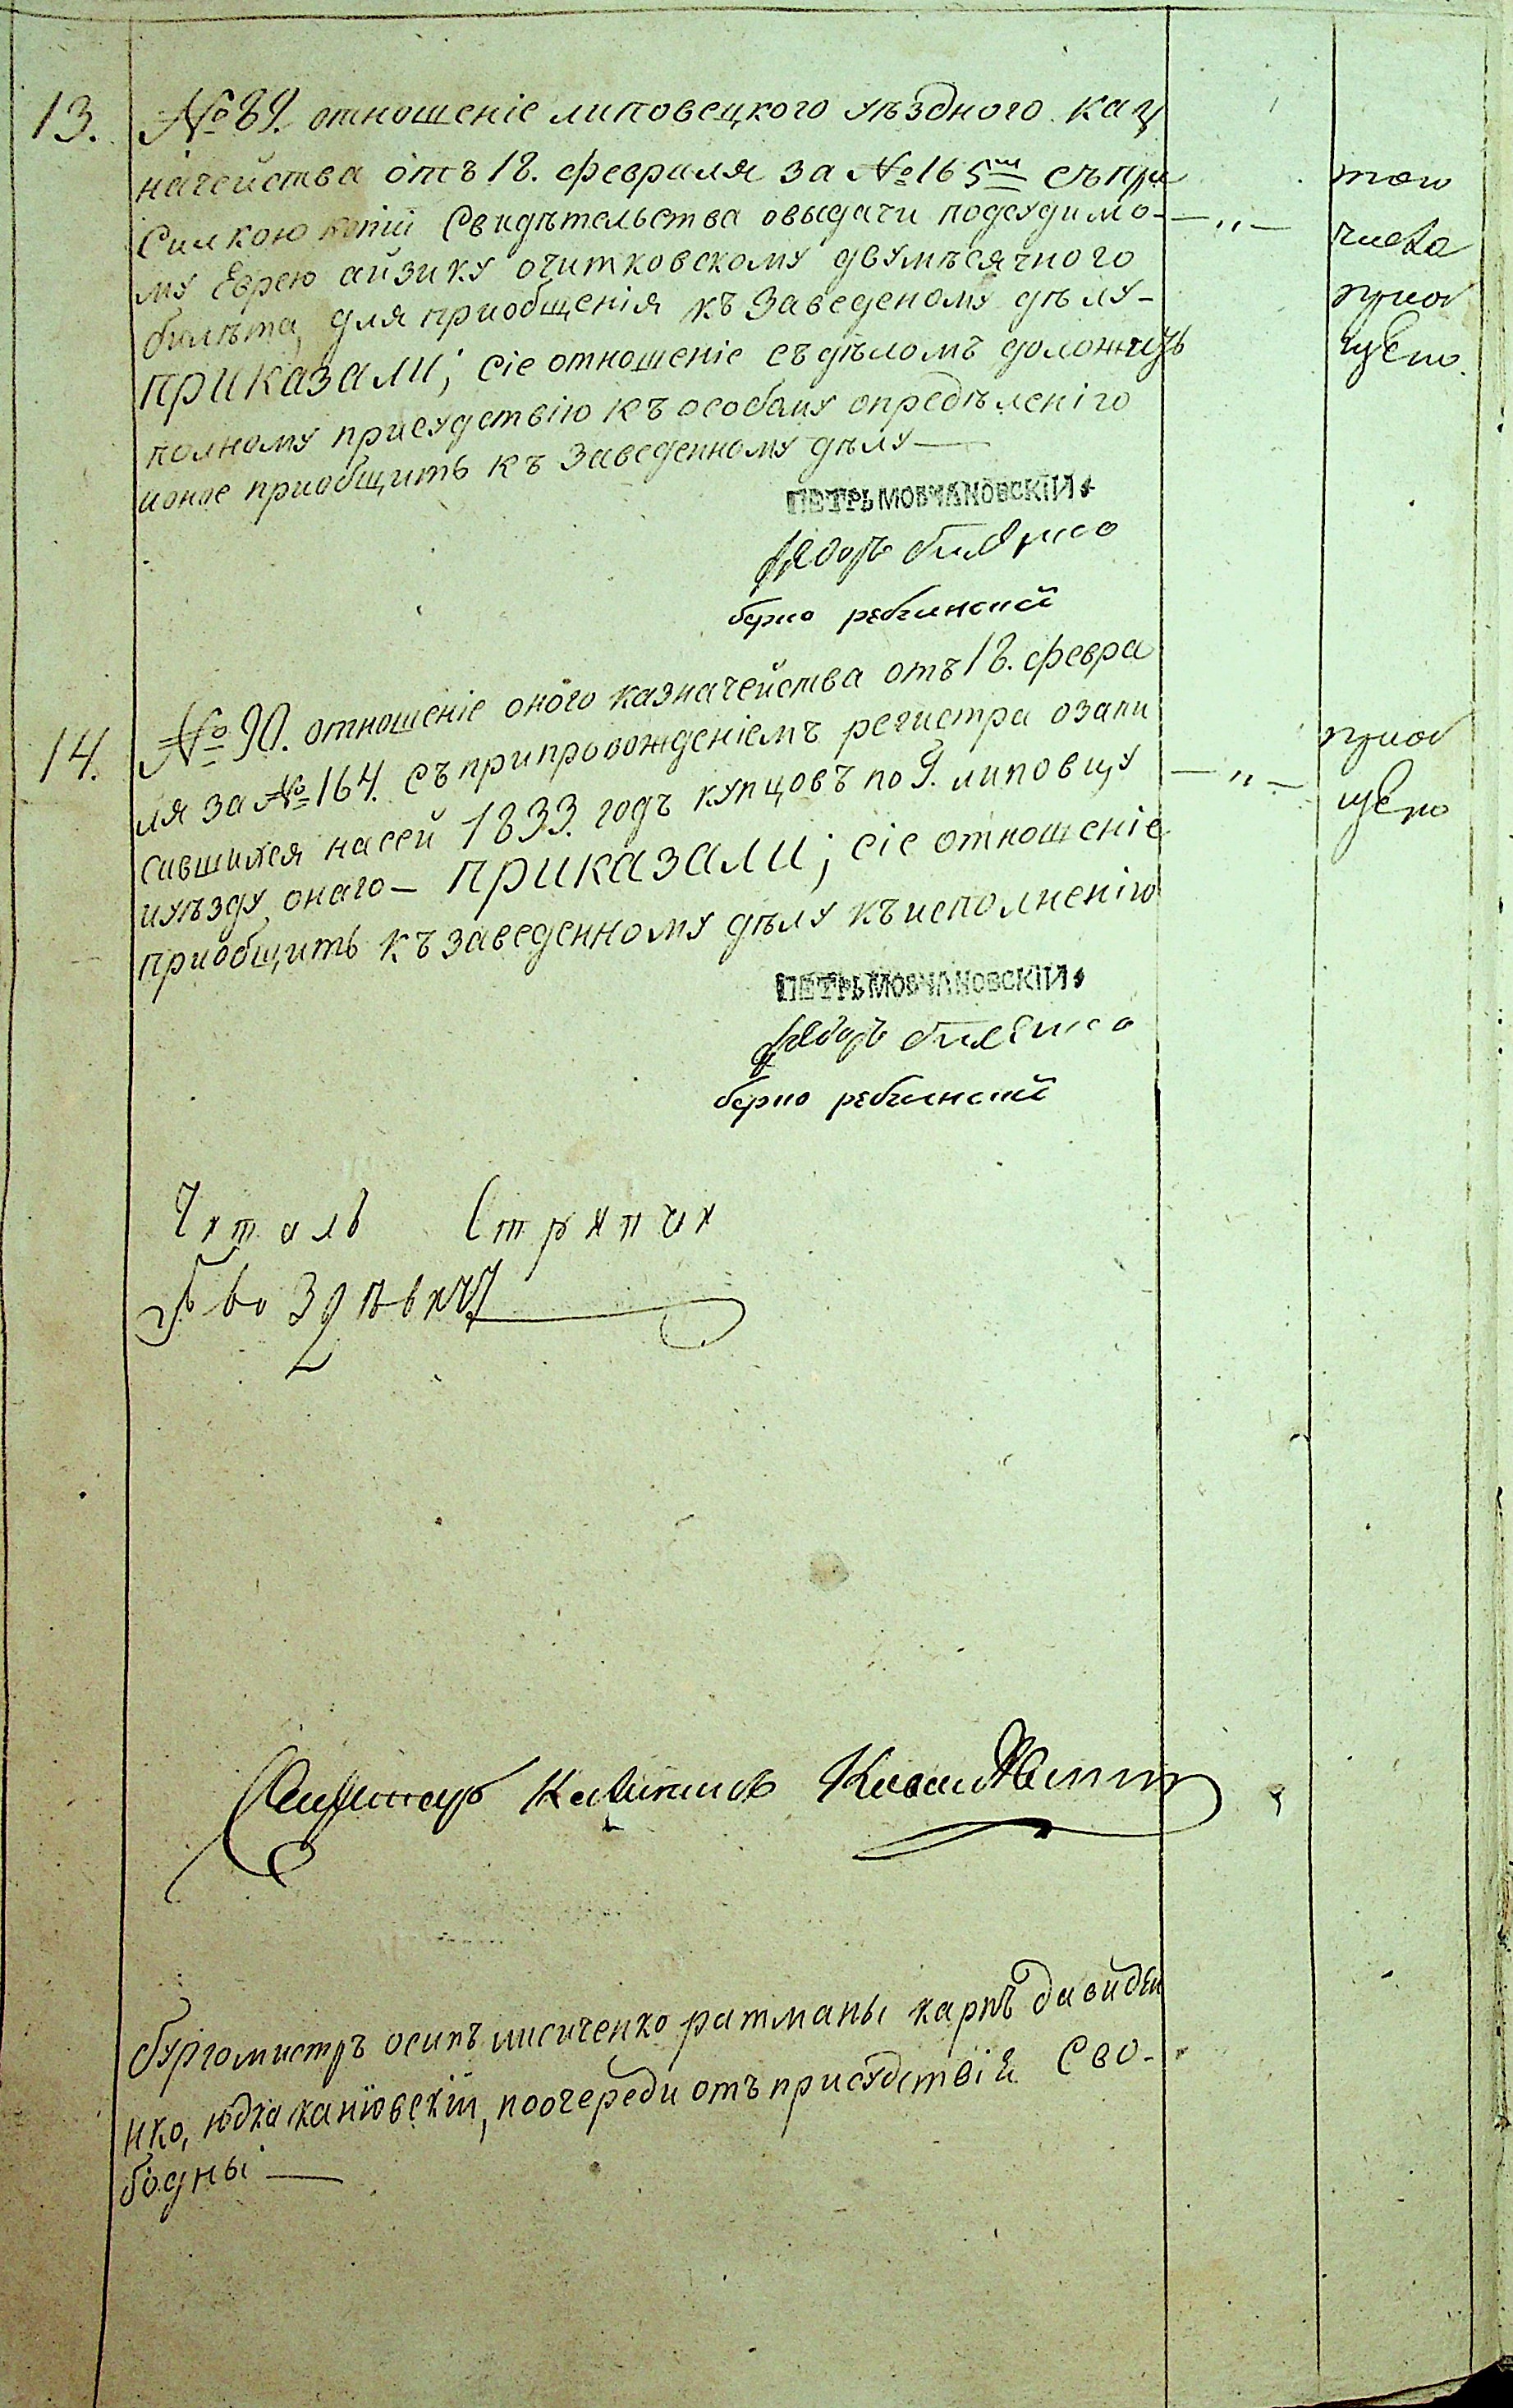 13. № 89. отношеніе липовецкого уѣздного каз
начейства отъ 18. февраля за № 165м съ при
силкою копіи Свидѣтельства овыдачи подсудимо- — " — того
му Еврею айзику очитковскому двумѣсячного числа
билѣта, для приобщенія къ Заведеному дѣлу- приоб
приказали; сіе отношеніе съ дѣломъ доложить щено.
полному присудствію къ особому опредѣленію
ионое приобщить къ Заведенному дѣлу —
ПЕТРЬ МОВЧАНОВСКІЙ
федоръ
берко ребинскій
14. № 90. отношеніе оного казначейства отъ 18. февра
ля за № 164. съ припровожденіемъ регистра озапи приоб
савшихся насей 1833. годъ купцовъ по г. липовцу — " — щено
иуѣзду онаго — приказали; сіе отношеніе
приобщить къ заведенному дѣлу къ исполненію
ПЕТРЬ МОВЧАНОВСКІЙ
федоръ
берко ребинскій
Читалъ Стряпчи
Секретарь
бургомистръ осипъ лисиченко ратманы карпъ давиде
нко, юдка каніовскій, поочереди отъ присудствія Сво-
бодны —